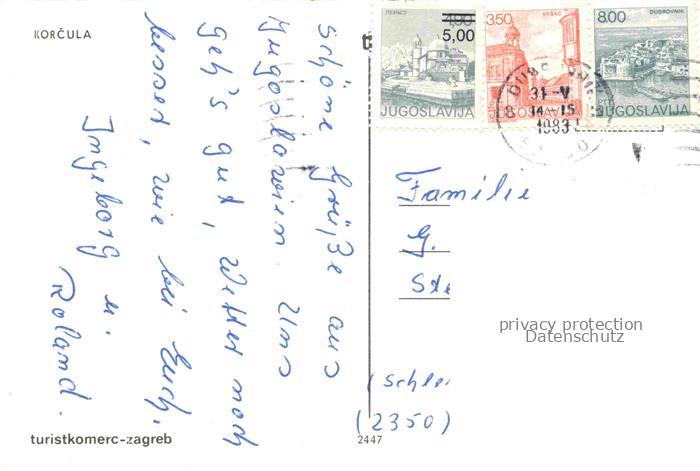 KORČULA
Schöne Grüße aus
Jugoslawien. Uns
geh's gut, Wetter noch
besser, wie bei Euch.
Ingeborg u.
Roland.
turistkomerc-zagreb
2447
t
4,90
5,00
JUGOSLAVIJA
3.50
VRŠAC
JUGOSLAVIJA
8.00
DUBROVNIK
JUGOSLAVIJA
31-V
14-15
1983
Familie
G.
privacy protection
Datenschutz
(Schle
(2350)